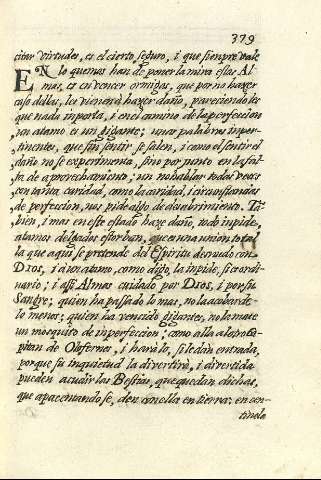 379
citar virtudes, es el cierto, seguro, i que siempre vale
EN lo que mas han de poner la mira estas Al-
mas, es en vencer ormigas, que por no hazer
caso dellas, les vienen à hazer daño, pareciendoles
que nada importa, i en el camino de la perfeccion
un atamo es un gigante; unas palabras imper-
tinentes, que sin sentir se salen, i como el sentir el
daño no se experimenta, sino por punto en la fal-
ta de aprovechamiento; un no hablar todas veces
con tanta caridad, como la caridad, i circunstancias
de perfeccion, nos pide algo de desabrimiento. Tã-
bien, i mas en este estado haze daño, todo inpide,
atamos delgados estorban, que es una union total
la que aqui se pretende del Espiritu desnudo con
DIOS, i ô un atamo, como digo, la inpide, si es ordi-
nario; i assi Almas cuidado por DIOS, i por su
Sangre; quien ha passado lo mas, no la acobarde
lo menos; quien ha vencido gigantes, no la mate
un mosquito de inperfeccion; como alla al
Capitan de Olofernes, i hará lo, si le dan entrada,
porque su inquietud la divertirá, i divertida
pueden acudir las Bestias, que quedan dichas,
que apacentandose, den con ella en tierra: en cen-
tinela